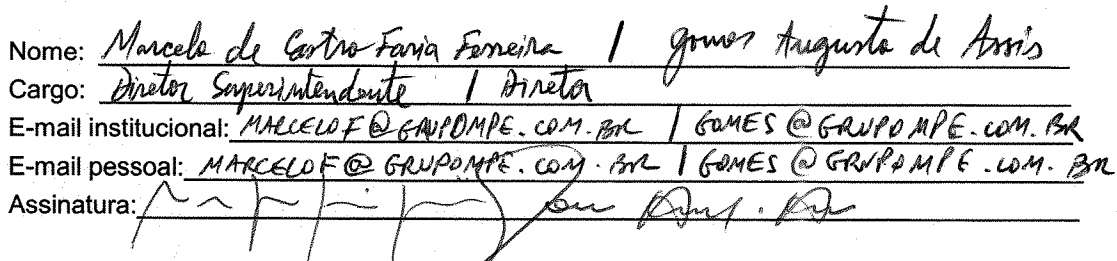 Nome: Marcelo de Castro Faria Ferreira | Gomes Augusto de Assis
Cargo: Diretor Superintendente | Diretor
E-mail institucional: MARCELOF@GRUPOMPE.COM.BR | GOMES@GRUPOMPE.COM.BR
E-mail pessoal: MARCELOF@GRUPOMPE.COM.BR | GOMES@GRUPOMPE.COM.BR
Assinatura: